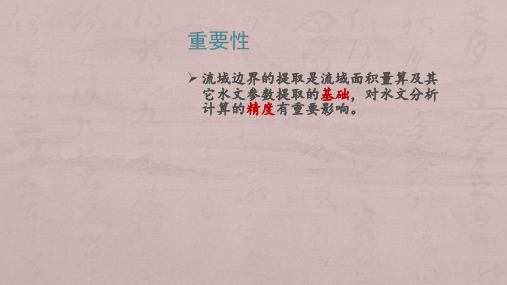 重要性
➢流域边界的提取是流域面积量算及其
它水文参数提取的基础，对水文分析
计算的精度有重要影响。